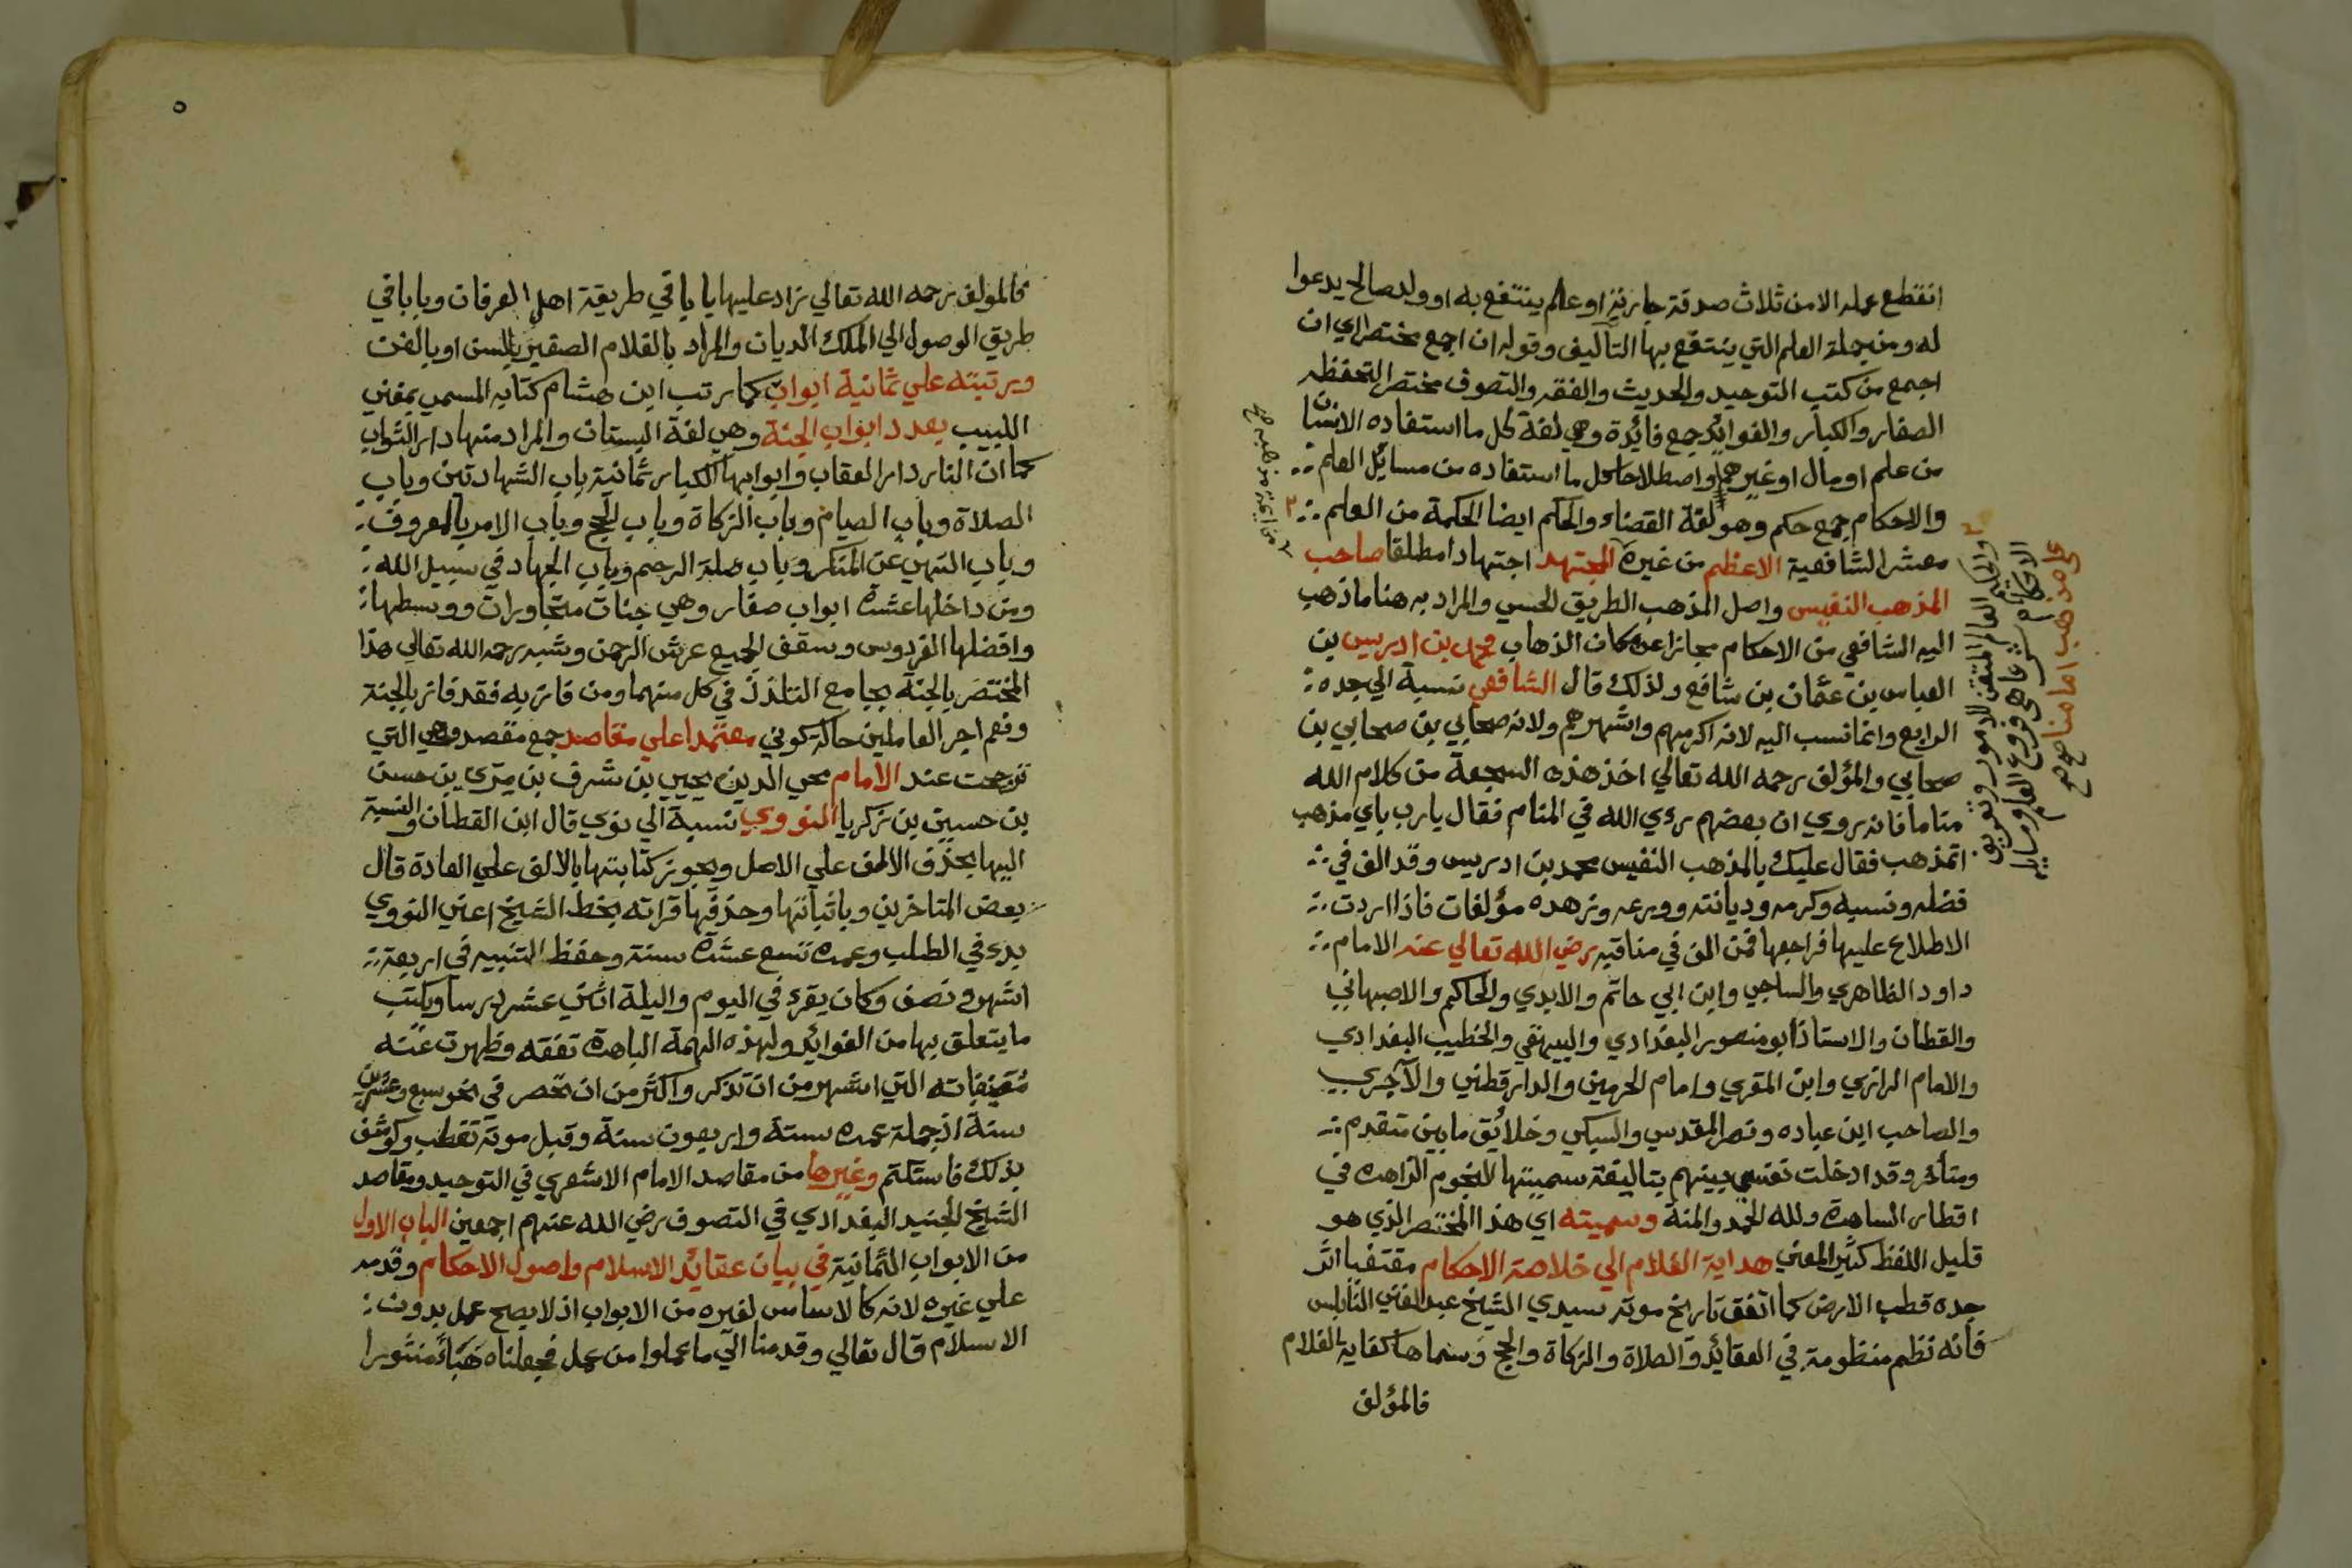 انقطع عمله الا من ثلاث صدقة جارية او علم ينتفع به او ولد صالح يدعوا
له ومن جملة العلم التي ينتفع بها التآليف وقوله ان اجمع مختصرا اي ان
اجمع من كتب التوحيد والحديث والفقه والتصوف مختصرا لتحفظه
الصغار والكبار والفوائد جمع فائدة وهي لغة كل ما استفاده الانسان
من علم او مال او غيرهما واصطلاحا كل ما استفاده من مسايل العلم
والاحكام جمع حكم وهو لغة القضاء والحكم ايضا الحكمة من العلم
معشر الشافعية الاعظم من غيره المجتهد اجتهادا مطلقا صاحب
المذهب النفيس واصل المذهب الطريق الحسي والمراد به هنا ما ذهب
اليه الشافعي من الاحكام مجازا عن مكان الذهاب محمد بن ادريس بن
العباس بن عثمان بن شافع ولذلك قال الشافعي نسبة الي جده
الرابع وانما نسب اليه لانه اكرمهم واشهرهم ولانه صحابي بن صحابي بن
صحابي والمؤلف رحمه الله تعالي اخذ هذه السجعة من كلام الله
مناما فانه روي ان بعضهم رءي الله في المنام فقال يا رب باي مذهب
اتمذهب فقال عليك بالمذهب النفيس محمد بن ادريس وقد الف في
فضله ونسبه وكرمه وديانته وورعه وزهده مؤلفات فاذا اردت
الاطلاع عليها فراجعها فمن الف في مناقبه رضي الله تعالي عنه الامام
داود الظاهري والساجي وابن ابي حاتم والابدي والحاكم والاصبهاني
والقطان والاستاذ ابو منصور البغدادي والبيهقي والخطيب البغدادي
والامام الرازي وابن المقري وامام الحرمين والدارقطني والآجري
والصاحب ابن عباده ونصر المقدسي والسبكي وخلائق ما بين متقدم
ومتأخر وقد ادخلت نفسي بينهم بتاليفة سميتها النجوم الزاهرة في
اقطار الساهرة ولله الحمد والمنة وسميته اي هذا المختصر الذي هو
قليل اللفظ كثير المعني هداية الغلام الي خلاصة الاحكام مقتفيا اثر
جده قطب الارض كما اتفق تاريخ موته سيدي الشيخ عبد الغني النابلسي
فانه نظم منظومة في العقائد والصلاة والزكاة والحج وسماها كفاية الغلام
فالمؤلف
والحكم العلم المتقن للامور وتعريف
الاحكام شرعا هي فروع العلم ومسايل
علي مذهب امامنا صح
٥
فالمؤلف رحمه الله تعالي زاد عليها بابا في طريقة اهل العرفان وبابا في
طريق الوصول الي الملك الديان والمراد بالغلام الصغير بالسن او بالفن
ورتبته علي ثمانية ابواب كما رتب ابن هشام كتابه المسمي بمغني
اللبيب بعدد ابواب الجنة وهي لغة البستان والمراد منها دار الثواب
كما ان النار دار العقاب وابوابها الكبار ثمانية باب الشهادتين وباب
الصلاة وباب الصيام وباب الزكاة وباب الحج وباب الامر بالمعروف
وباب النهي عن المنكر وباب صلة الرحم وباب الجهاد في سبيل الله
ومن داخلها عشرة ابواب صغار وهي جنات متجاورات ووسطها
وافضلها الفردوس وسقف الجميع عرش الرحمن وشبه رحمه الله تعالي هذا
المختصر بالجنة بجامع التلذذ في كل منهما ومن فاز به فقد فاز بالجنة
ونعم اجر العاملين حالة كوني معتمدا علي مقاصد جمع مقصد وهي التي
ترجحت عند الامام محي الدين يحيي بن شرف بن مري بن حسن
بن حسين بن زكريا النووي نسبة الي نوي قال ابن القطان والنسبة
اليها بحذف الالف علي الاصل ويجوز كتابتها بالالف علي العادة قال
بعض المتاخرين وباثباتها وحذفها قراته بخط الشيخ اعني النووي
بدء في الطلب وعمره تسع عشرة سنة وحفظ التنبيه في اربعة
اشهر ونصف وكان يقرء في اليوم والليلة اثني عشر درسا ويكتب
ما يتعلق بها من الفوائد ولهذه الهمة الباهرة تفقه وظهرت عنه
مصنفاته التي اشهر من ان تذكر واكثر من ان تحصر في نحو سبع وعشرين
سنة اذ جملة عمره ستة واربعون سنة وقبل موته تقطب وكوشف
بذلك فاستكتم وغيرها من مقاصد الامام الاشعري في التوحيد ومقاصد
الشيخ الجنيد البغدادي في التصوف رضي الله عنهم اجمعين الباب الاول
من الابواب الثمانية في بيان عقائد الاسلام واصول الاحكام وقدمه
علي غيره لانه كالاساس لغيره من الابواب اذ لا يصح عمل بدون
الاسلام قال تعالي وقدمنا الي ما عملوا من عمل فجعلناه هباء منثورا